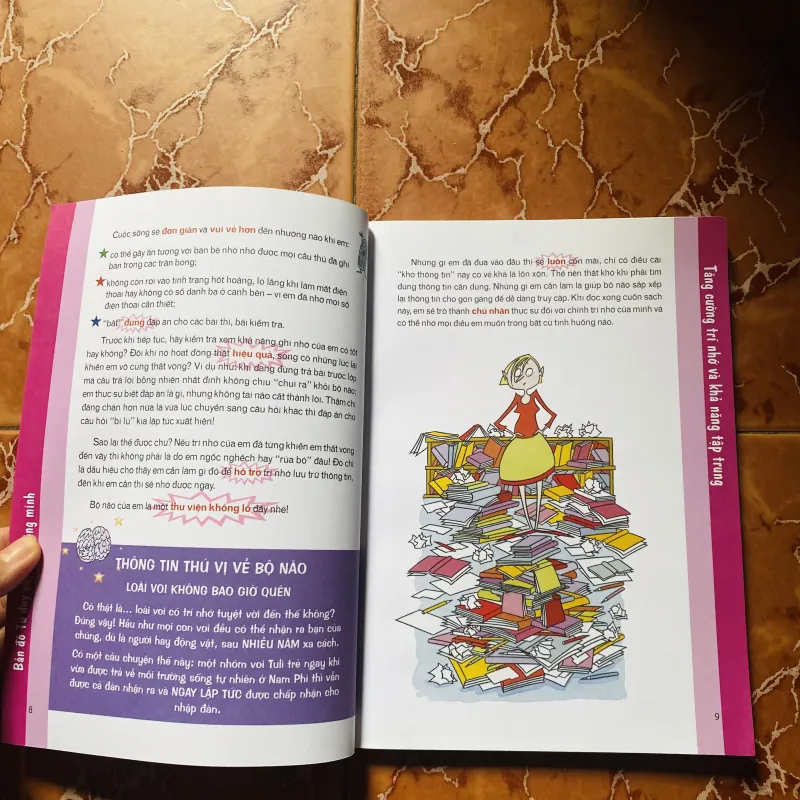 Cuộc sống sẽ đơn giản và vui vẻ hơn đến nhường nào khi em:
có thể gây ấn tượng với bạn bè nhờ nhớ được mọi cầu thủ đã ghi
bàn trong các trận bóng;
không còn rơi vào tình trạng hốt hoảng, lo lắng khi làm mất điện
thoại hay không có sổ danh bạ ở cạnh bên – vì em đã nhớ mọi số
điện thoại cần thiết;
"bắt" đúng đáp án cho các bài thi, bài kiểm tra.
Trước khi tiếp tục, hãy kiểm tra xem khả năng ghi nhớ của em có tốt
hay không? Đôi khi nó hoạt động thật hiệu quả, song có những lúc lại
khiến em vô cùng thất vọng? Ví dụ như khi đang đứng trả bài trước lớp
mà câu trả lời bỗng nhiên nhất định không chịu "chui ra" khỏi bộ não;
em thực sự biết đáp án là gì, nhưng không tài nào cất thành lời. Thậm chí
đáng chán hơn nữa là vừa lúc chuyển sang câu hỏi khác thì đáp án cho
câu hỏi "bí lù" kia lập tức xuất hiện!
Sao lại thế được chứ? Nếu trí nhớ của em đã từng khiến em thất vọng
đến vậy thì không phải là do em ngốc nghếch hay "rùa bò" đâu! Đó chỉ
là dấu hiệu cho thấy em cần làm gì đó để hỗ trợ trí nhớ lưu trữ thông tin,
đến khi em cần thì sẽ nhớ được ngay.
Bộ não của em là một thư viện khổng lồ đấy nhé!
THÔNG TIN THÚ VỊ VỀ BỘ NÃO
LOÀI VOI KHÔNG BAO GIỜ QUÊN
Có thật là... loài voi có trí nhớ tuyệt vời đến thế không?
Đúng vậy! Hầu như mọi con voi đều có thể nhận ra bạn của
chúng, dù là người hay động vật, sau NHIỀU NĂM xa cách.
Có một câu chuyện thế này: một nhóm voi Tuli trẻ ngay khi
vừa được trả về môi trường sống tự nhiên ở Nam Phi thì vẫn
được cả đàn nhận ra và NGAY LẬP TỨC được chấp nhận cho
nhập đàn.
8
Bản đồ Tư duy
ông minh
Những gì em đã đưa vào đầu thì sẽ luôn còn mãi, chỉ có điều cái
"kho thông tin" này có vẻ khá là lộn xộn. Thế nên thật khó khi phải tìm
đúng thông tin cần dùng. Những gì em cần làm là giúp bộ não sắp xếp
lại thông tin cho gọn gàng để dễ dàng truy cập. Khi đọc xong cuốn sách
này, em sẽ trở thành chủ nhân thực sự đối với chính trí nhớ của mình và
có thể nhớ mọi điều em muốn trong bất cứ tình huống nào.
Tăng cường trí nhớ và khả năng tập trung
9